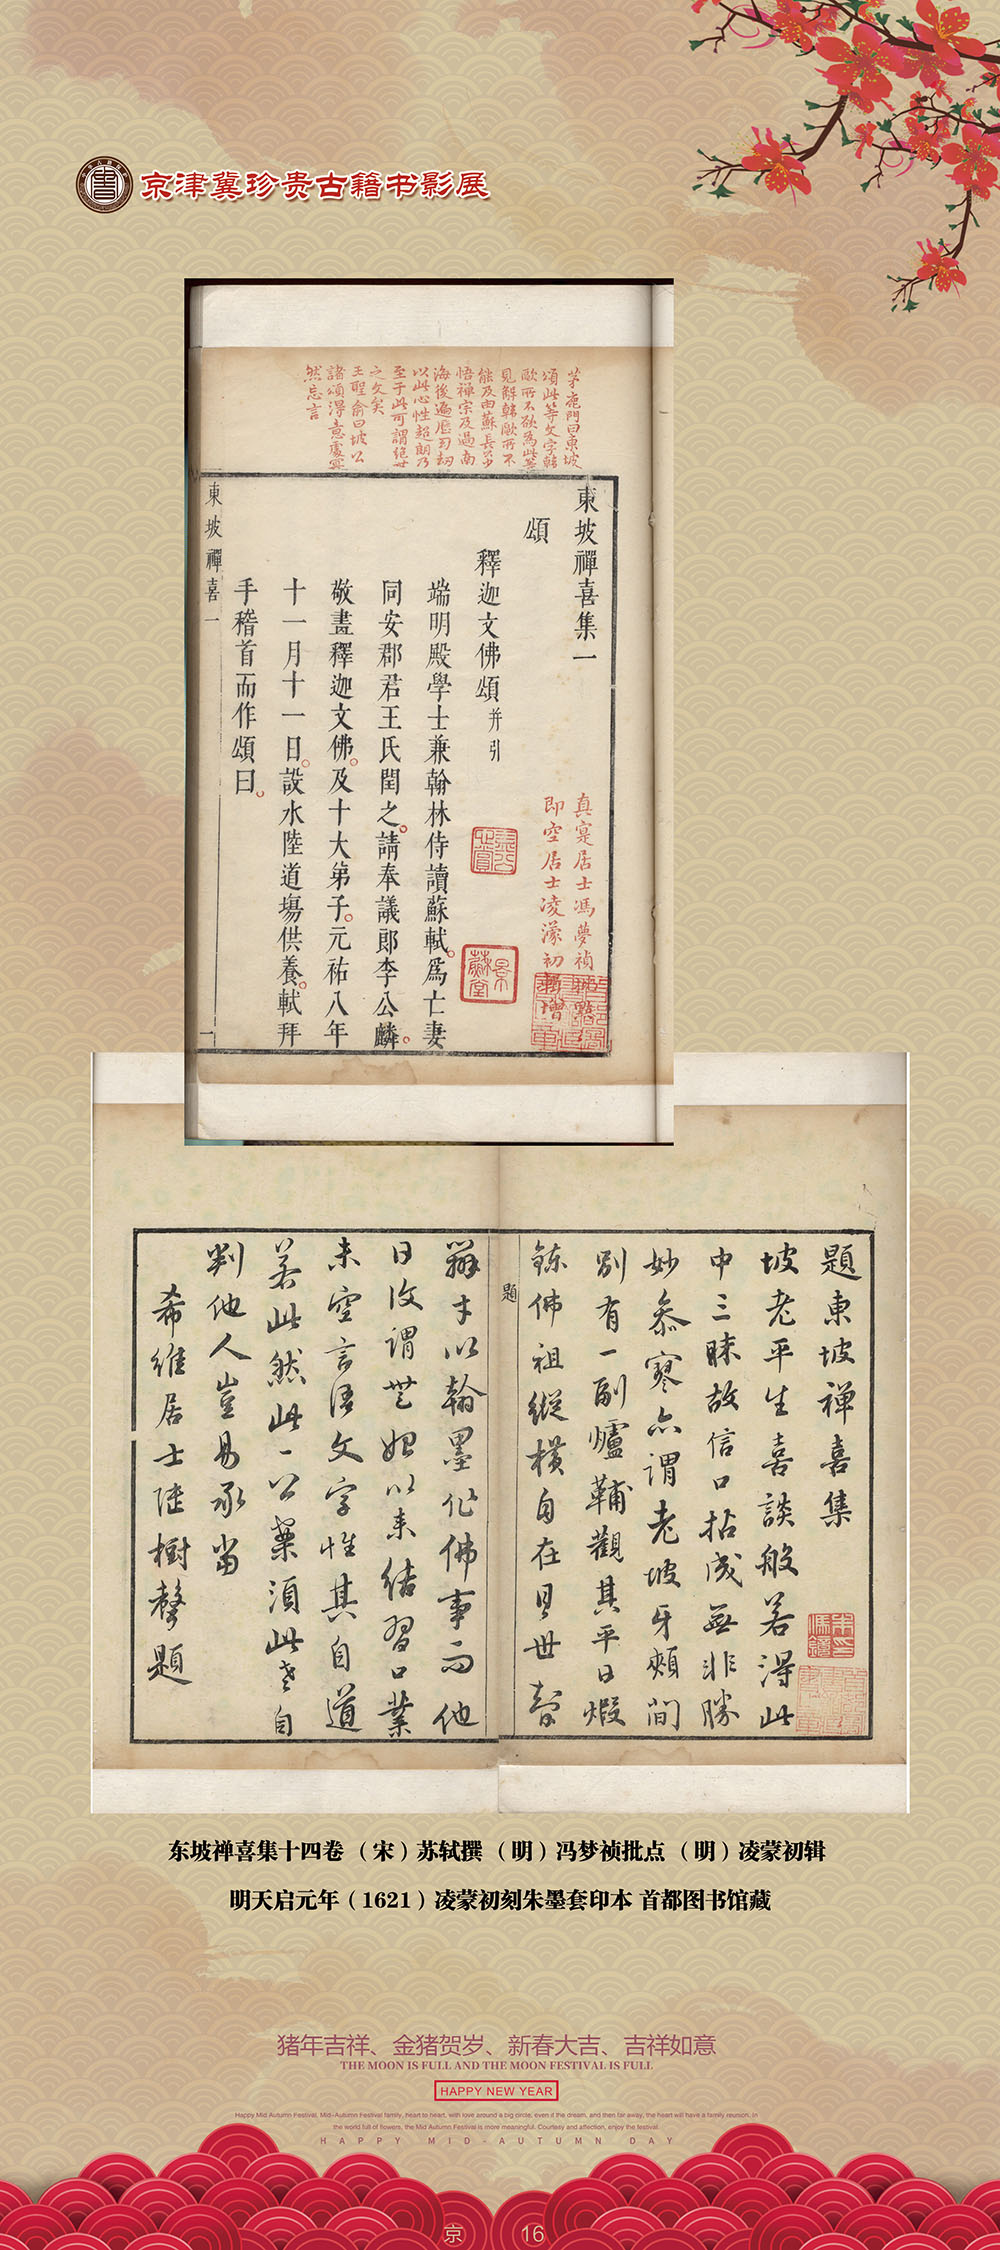 京津冀珍贵古籍书影展
茅鹿門曰東坡
頌此等文字韩
歐所不欲為此等
見解韓歐所不
能及由蘇長公
悟禅宗及過南
海後遍歷劫
以此心性超朗乃
至于此可謂絕世
之文矣
王聖俞曰坡公
諸頌得意處冥
然忘言
東坡禪喜集一
頌
釋迦文佛頌并引
端明殿學士兼翰林侍讀蘇軾爲亡妻
同安郡君王氏閏之請奉議郎李公麟
敬畫釋迦文佛及十大弟子元祐八年
十一月十一日設水陸道塲供養軾拜
手稽首而作頌曰
東坡禪喜一
一
真寔居士馮夢禎批點
即空居士凌濛初輯增
題東坡禅喜集
坡老平生喜談般若得此
中三昧故信口拈成無非勝
妙叅寥亦謂老坡牙頰間
別有一副爐鞴觀其平日煅
鍊佛祖縱橫自在見世智
辯才以翰墨作佛事而他
日復謂無始以來結習口業
未空言語文字性其自道
若此然此一公案須此老自
判他人豈易承當
希維居士陸樹聲題
題
东坡禅喜集十四卷（宋）苏轼撰（明）冯梦祯批点（明）凌蒙初辑
明天启元年（1621）凌蒙初刻朱墨套印本 首都图书馆藏
猪年吉祥、金猪贺岁、新春大吉、吉祥如意
THE MOON IS FULL AND THE MOON FESTIVAL IS FULL
HAPPY NEW YEAR
Happy Mid Autumn Festival, Mid-Autumn Festival family, heart to heart, with love around a big circle, even if the dream, and then far away, the heart will have a family reunion. In
the world full of flowers, the Mid Autumn Festival is more meaningful. Courtesy and affection, enjoy the festival.
HAPPY MID-AUTUMN DAY
京 16